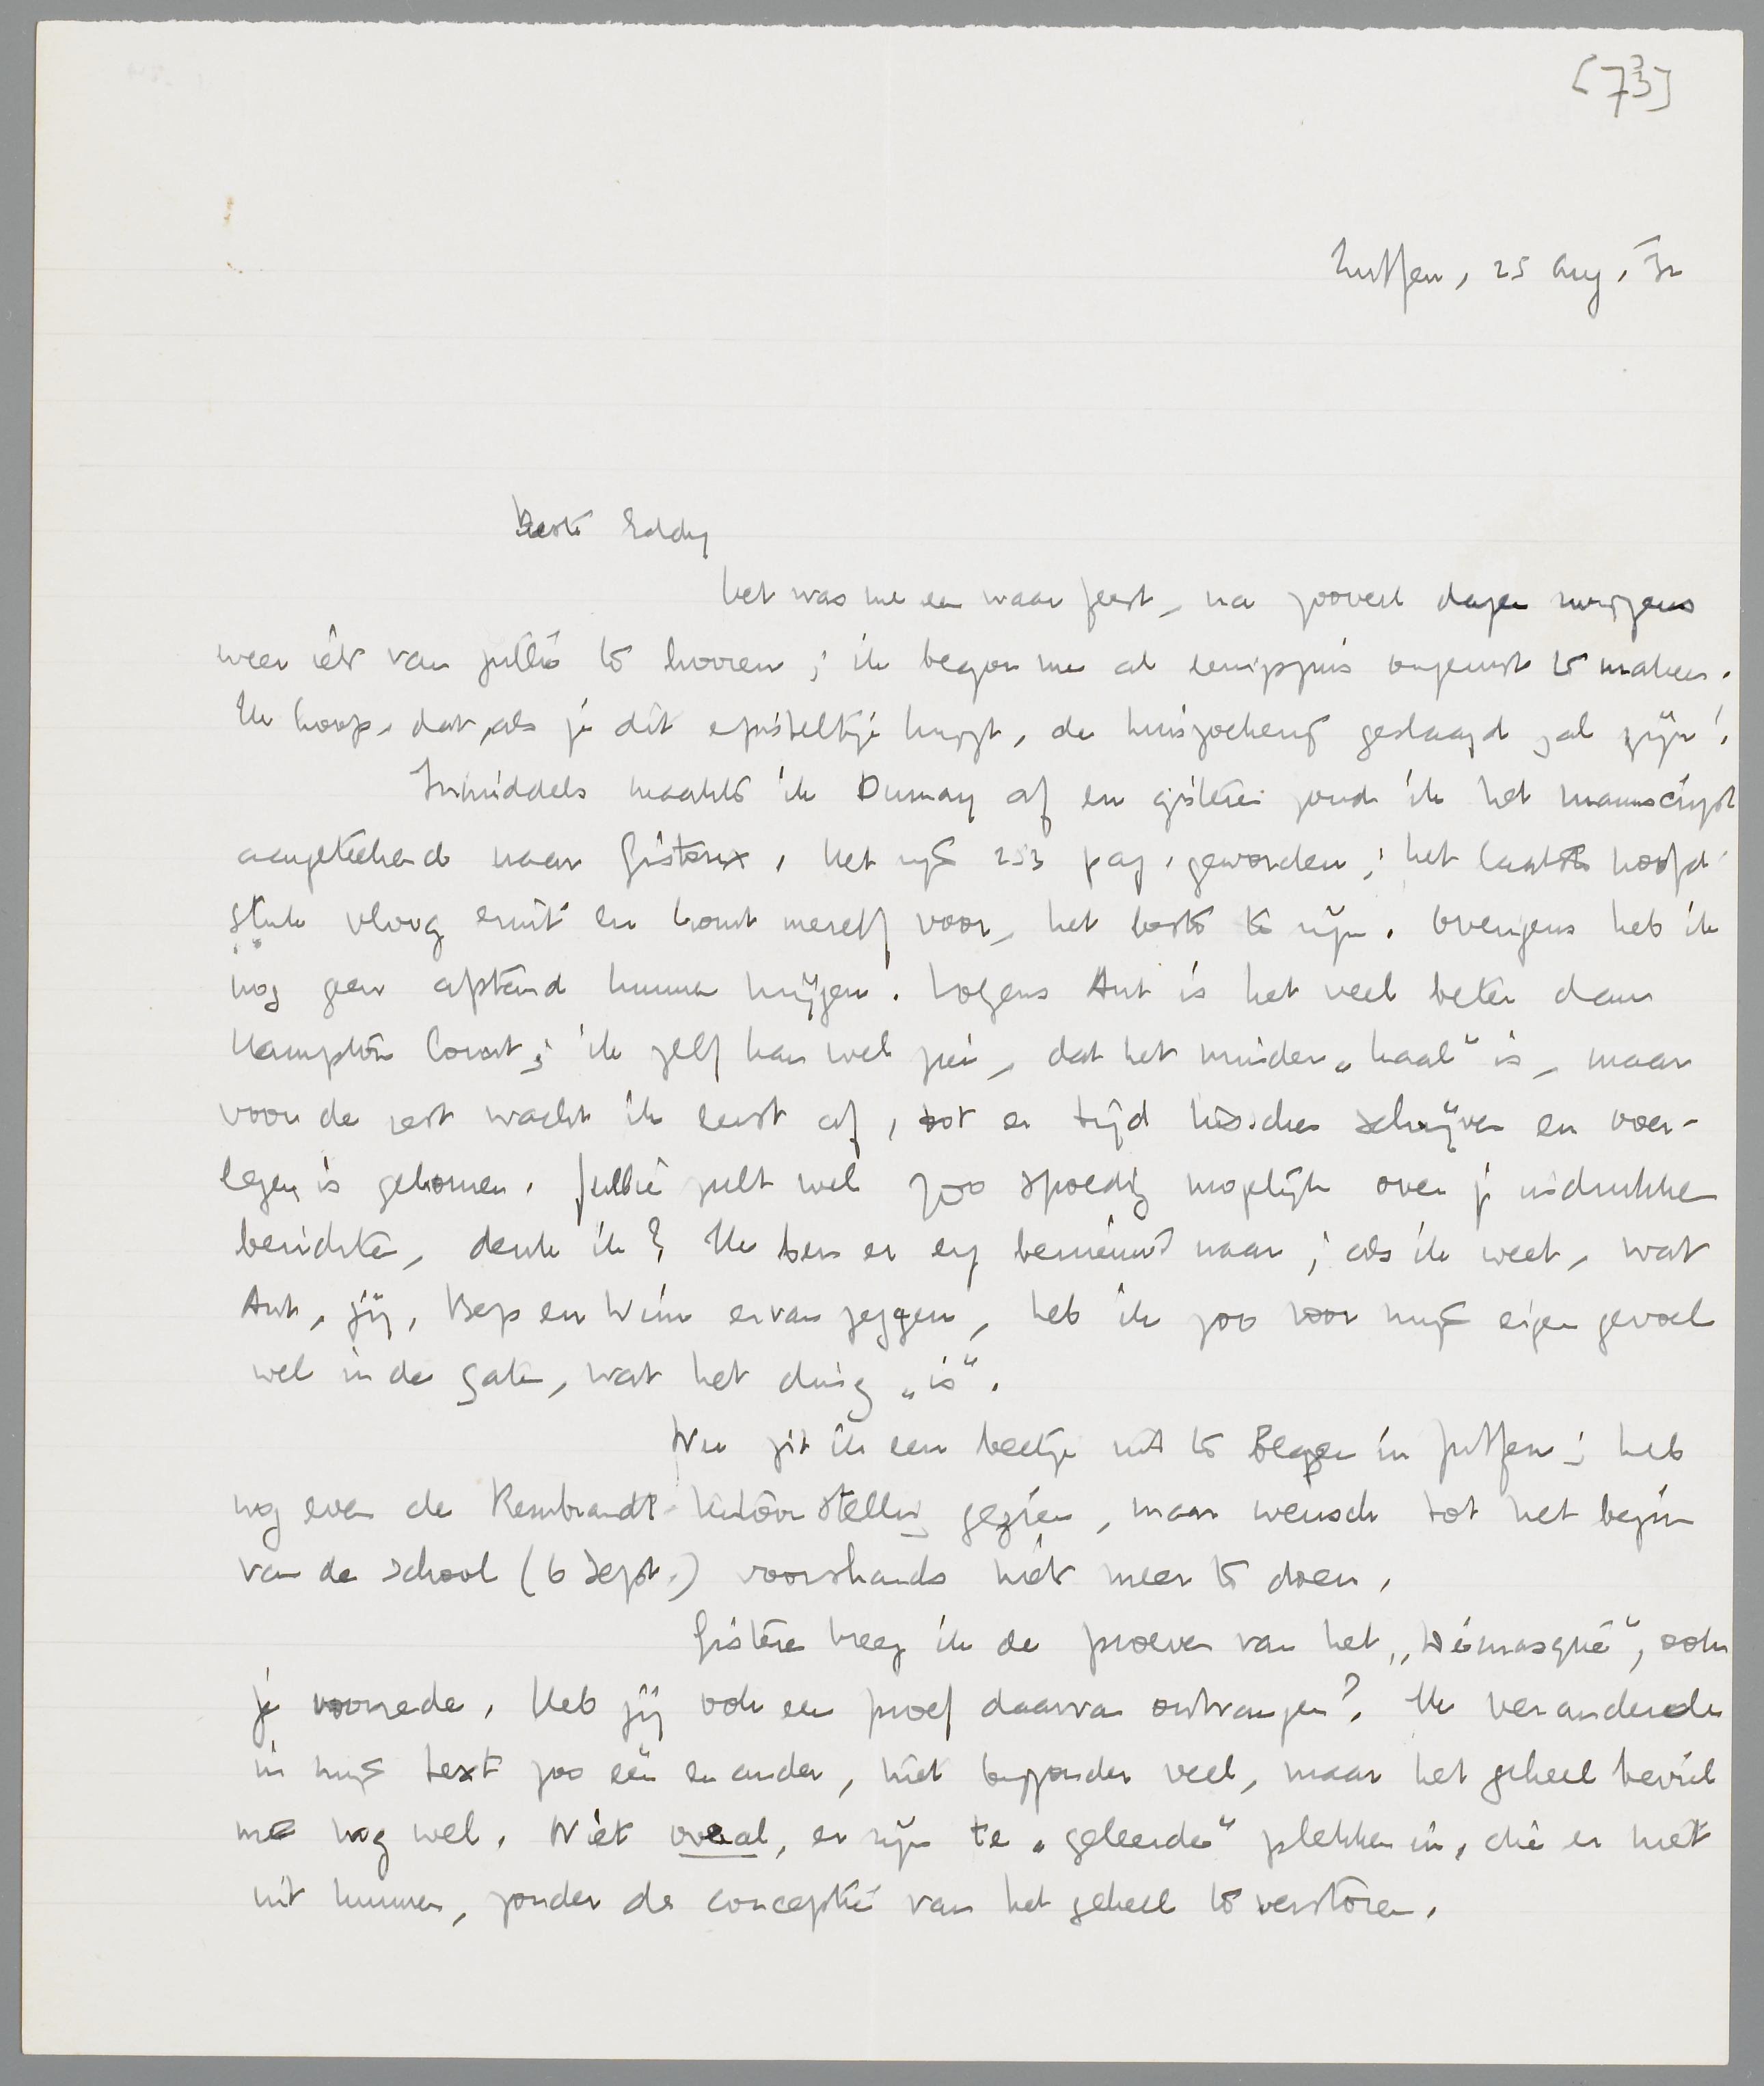 [73]
Zutfen, 25 Aug. '32
Beste Eddy
het was me een waar feest, na zooveel dagen
weer iets van jullie te hooren; ik begon me al eenigszins ongerust te maken.
Ik hoop, dat, als je dit episteltje krijgt, de huiszoekerij geslaagd zal zijn!
Inmiddels maakte ik Dumay af en gisteren zond ik het manuscript
aangeteekend naar Gistoux. Het zijn 233 pag. geworden; het laatste hoofd-
stuk vloog eruit en komt mezelf voor, het beste te zijn. Overigens heb ik
nog geen afstand kunnen krijgen. Volgens Ant is het veel beter dan
Hampton Court; ik zelf kan wel zien, dat het minder „kaal” is, maar
voor de rest wacht ik eerst af, tot er tijd tusschen schrijven en over-
lezen is gekomen. Jullie zult wel zoo spoedig mogelijk over je indrukken
berichten, denk ik? Ik ben er erg benieuwd naar; als ik weet, wat
Ant, jij, Bep en Wim ervan zeggen, heb ik zoo voor mijn eigen gevoel
wel in de gaten, wat het ding „is”.
Nu zit ik een beetje uit te blazen in Zutfen; heb
nog even de Rembrandt-tentoonstelling gezien, maar wensch tot het begin
van de school (6 Sept.) voorshands niets meer te doen.
Gisteren kreeg ik de proeven van het „Démasqué”, ook
je voorrede. Heb jij ook een proef daarvan ontvangen? Ik veranderde
in mijn text zoo een en ander, niet bijzonder veel, maar het geheel beviel
me nog wel. Niet overal, er zijn te „geleerde” plekken in, die er niet
uit kunnen, zonder de conceptie van het geheel te verstoren.